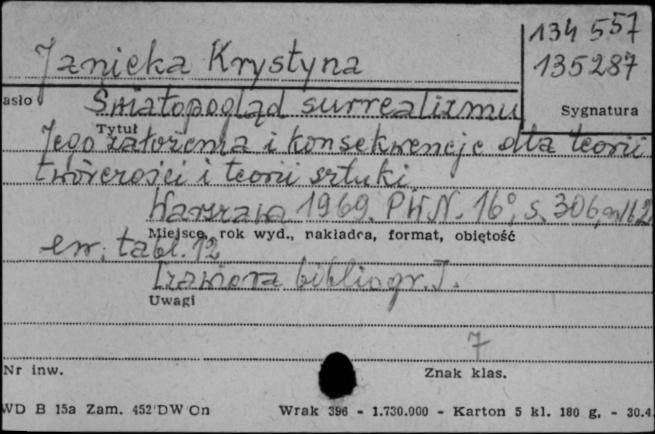 134 557
Janicka Krystyna
135287
asło
Światopogląd surrealizmu
Sygnatura
Tytuł
Jego założenia i konsekwencje dla teorii
twórczości i teorii sztuki.
Warszawa 1969. PWN. 16°, s. 306, nlb 2
Miejsce, rok wyd., nakładca, format, objętość
err; tabl. 12
Zawiera bibliogr. J.
Uwagi
7
Nr inw.
Znak klas.
WD B 15a Zam. 452 DW On Wrak 396 - 1.730.000 - Karton 5 kl. 180 g. - 30.4.